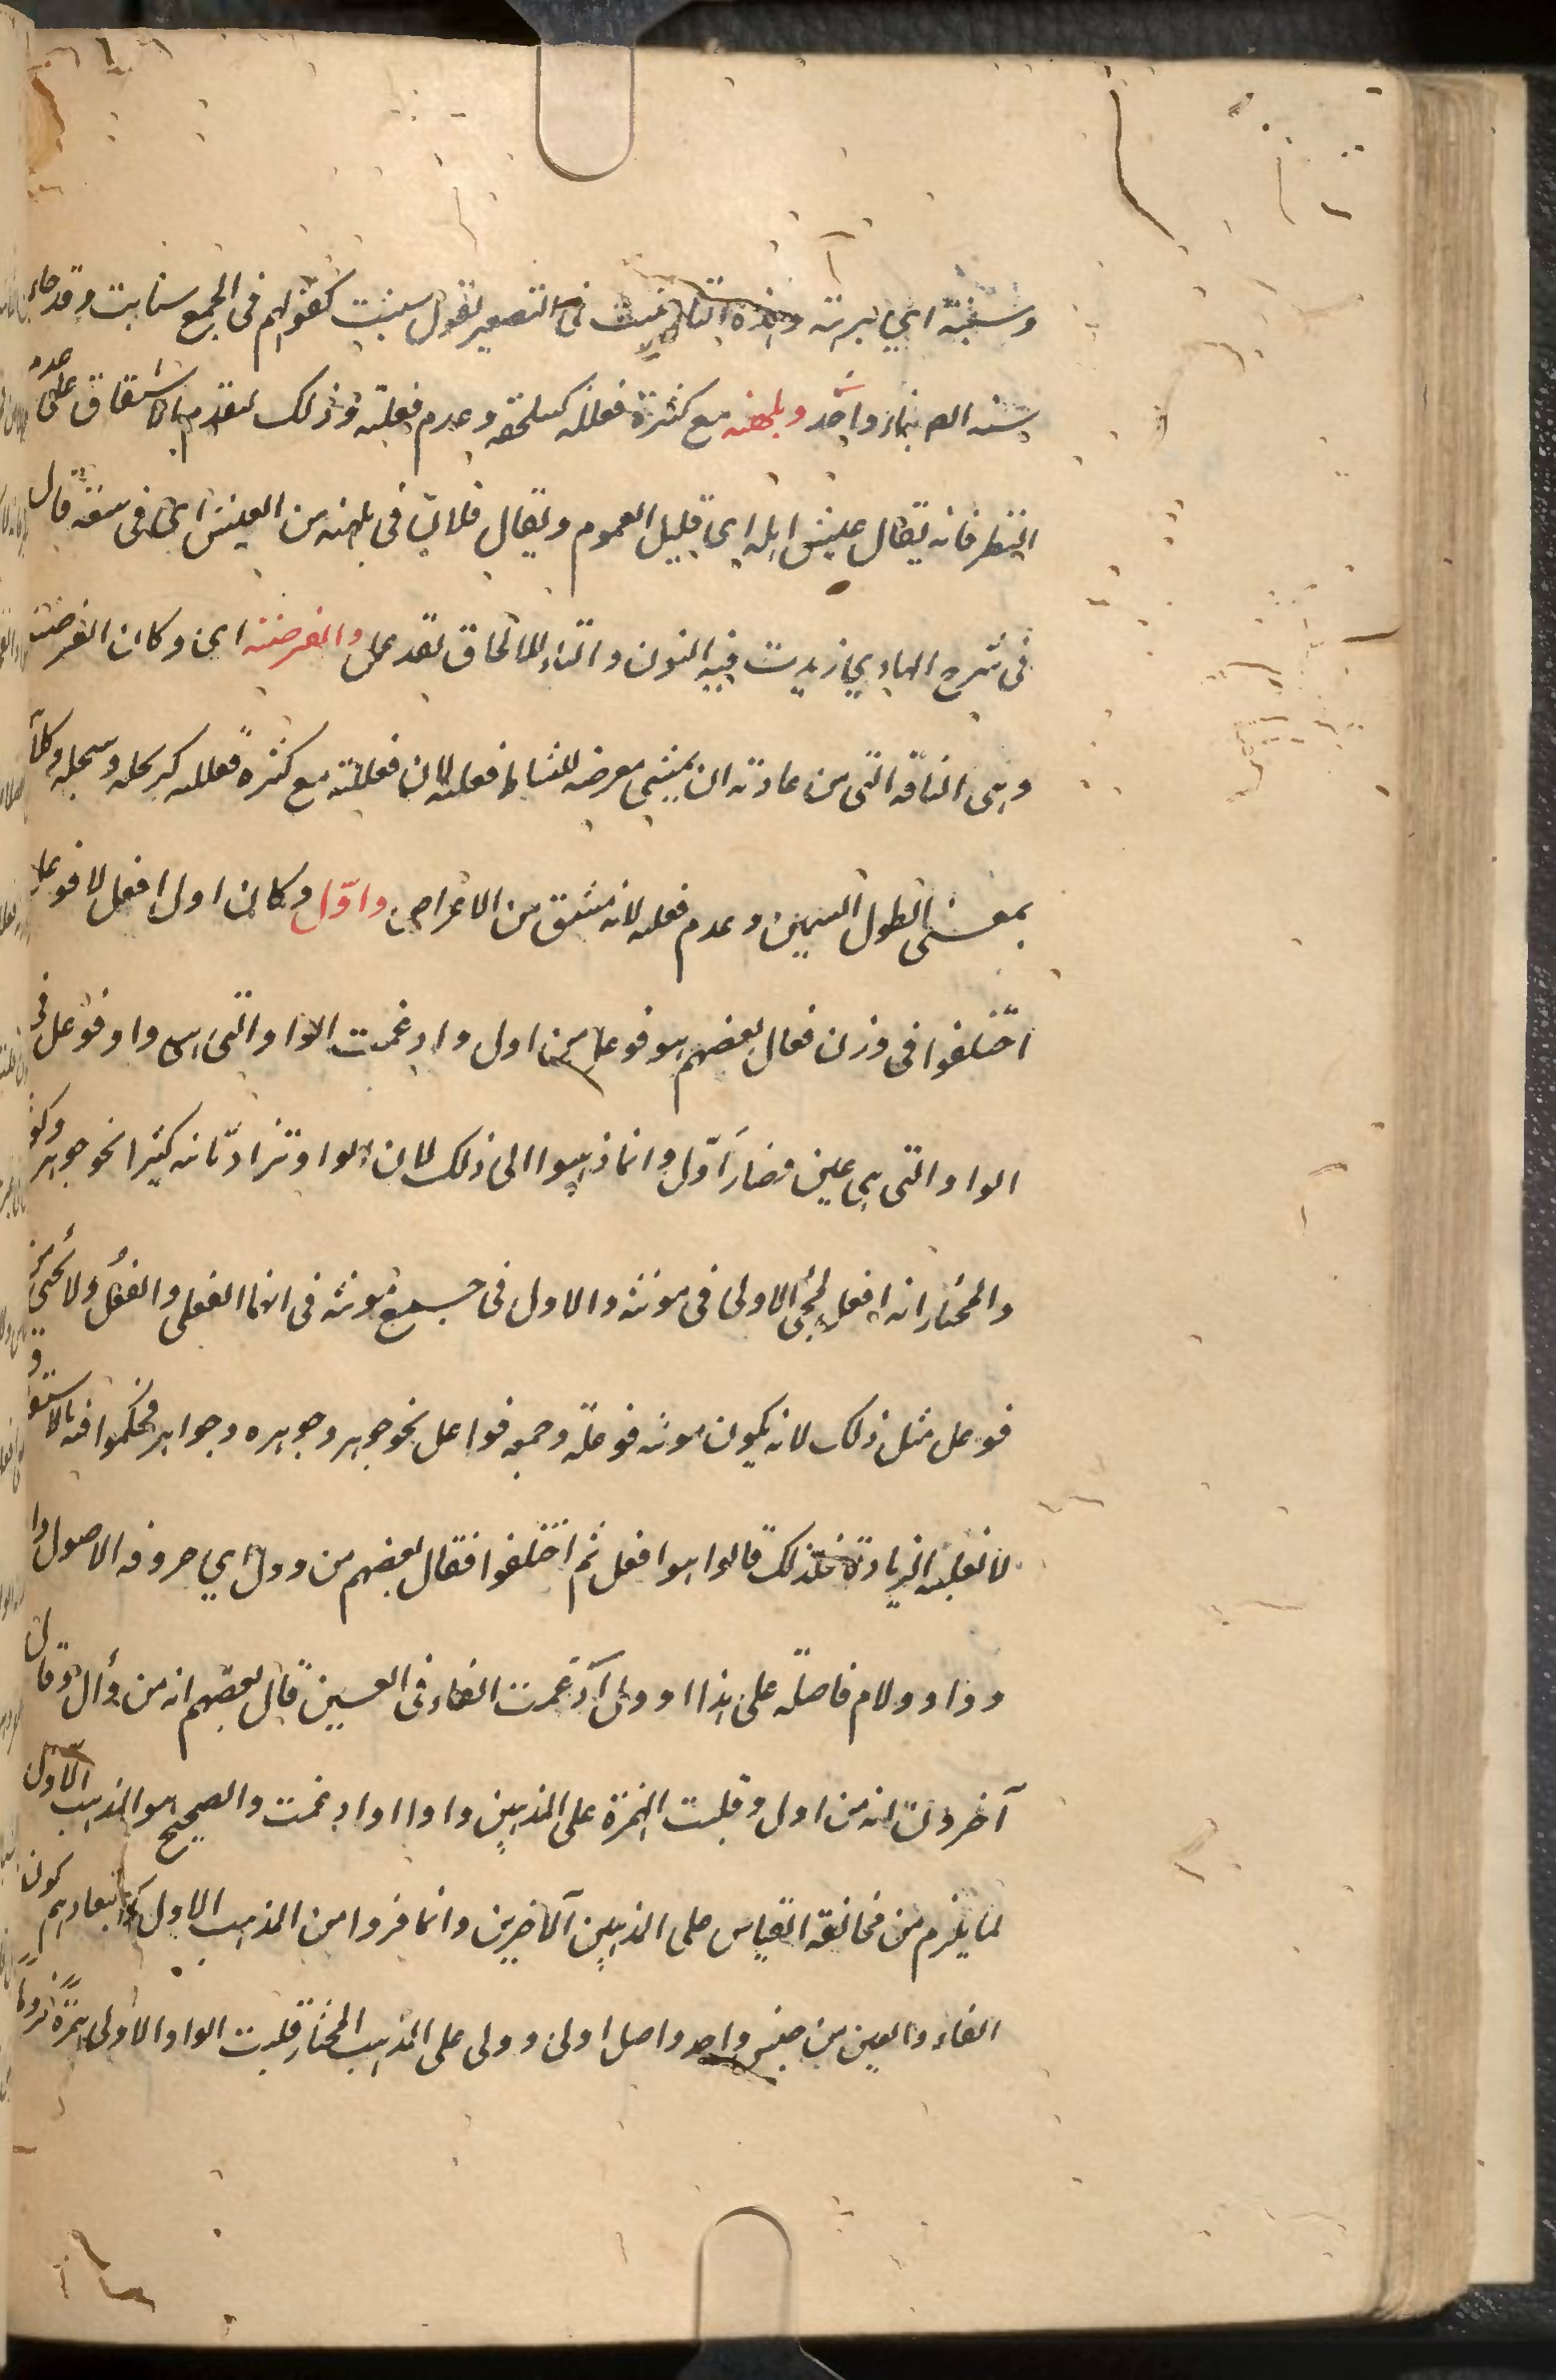 وسنبتة اي برهة وهذه التاء تثبت في التصغير تقول سنيبت كقولهم في الجمع سنابت وقد جاء
واحد وبلهنيه مع كثرة فعلله كسلحفه وعدم فعلنه وذلك لتقدم الاشتقاق على عدم
النظير فانه يقال عيش ابله اي قليل الغموم ويقال فلان في بلهنيه من العيش اي في سعة قال
في شرح الهادي زيدت فيه النون والتاء للالحاق بقذعمل والعرضنه اي وكان العرضنة
وهي الناقة التي من عادتها ان يمشي معرضه للنشاط فعلنه لا فعللة مع كثرة فعلله كربحله وسبحله وكلاهما
بمعنى الطويل السمين وعدم فعلنه لانه مشتق من الاعتراض واوّل وكان اول افعل لا فوعل
اختلفوا في وزنه فقال بعضهم هو فوعل من اول وادغمت الواو التي هي واو فوعل في
الواو التي هي عين فصار اوّل وانما ذهبوا الى ذلك لان الواو تزاد ثانية كثيرا نحو جوهر وكوثر
والمختار انه افعل لمجئ الاولى في مونثه والاول في جمع مونثه في انما الفعلى والفُعل ولا يجئ من
فوعل مثل ذلك لانه يكون مونثه فوعلة وجمعه فواعل نحو جوهر وجوهره وجواهر فحكموا فيه بالاشتقاق
لا بغلبه الزيادة فلذلك قالوا هو افعل ثم اختلفوا فقال بعضهم من وول اي حروفه الاصول واو
وواو ولام فاصله على هذا اوول ادغمت الفاء في العين قال بعضهم انه من وأل وقال
آخرون انه من اول وقلبت الهمزة على المذهبين واوا وادغمت والصحيح هو المذهب الاول
لما يلزم من مخالفة القياس على المذهبين الآخرين وانما فروا من المذهب الاول لاستبعادهم كون
الفاء والعين من جنس واحد واصل اولى وولى على المذهب المختار قلبت الواو الاولى همزة لزوما